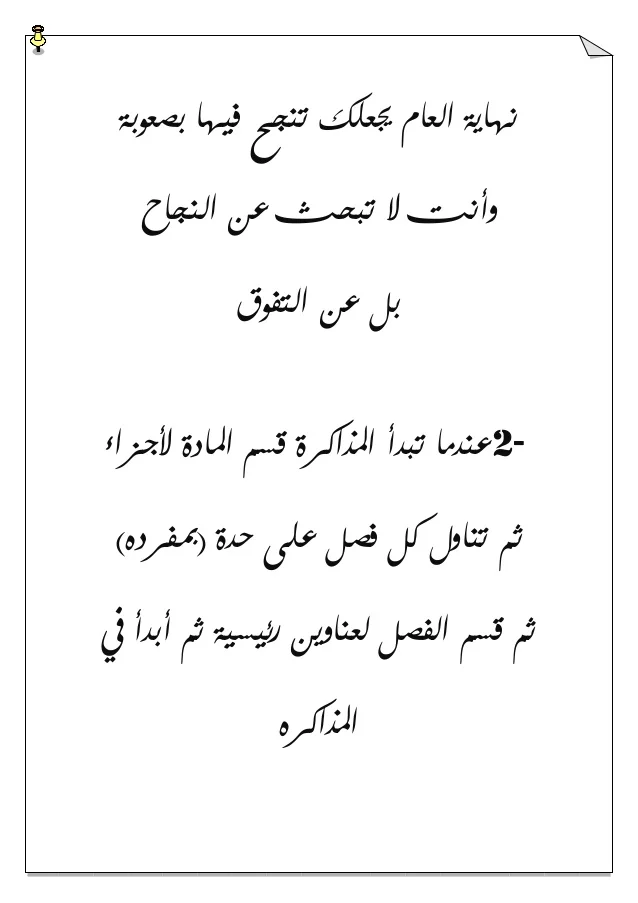 نهاية العام يجعلك تنجح فيها بصعوبة
وأنت لا تبحث عن النجاح
بل عن التفوق
2-عندما تبدأ المذاكرة قسم المادة لأجزاء
ثم تناول كل فصل على حدة (بمفرده)
ثم قسم الفصل لعناوين رئيسية ثم أبدأ في
المذاكره